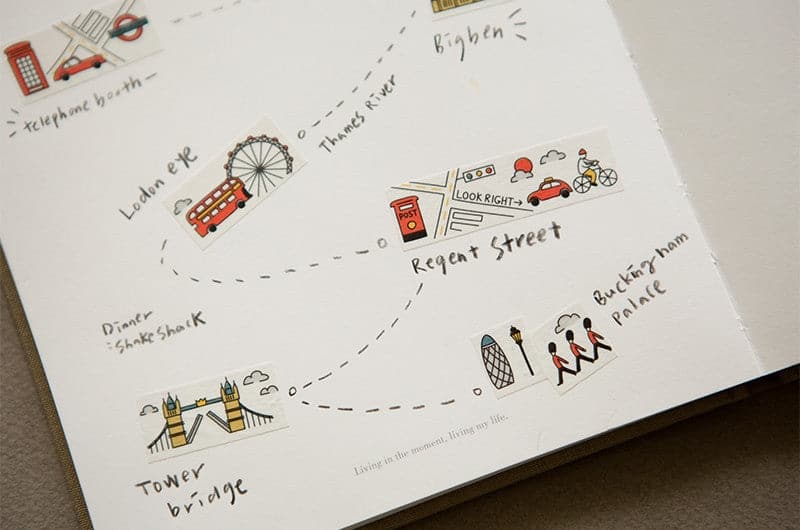 Bigben
telephone booth
Thames River
Lodon eye
POST
LOOK RIGHT→
Regent Street
Buckingham
palace
Dinner
:Shakeshack
Tower
bridge
Living in the moment, living my life.